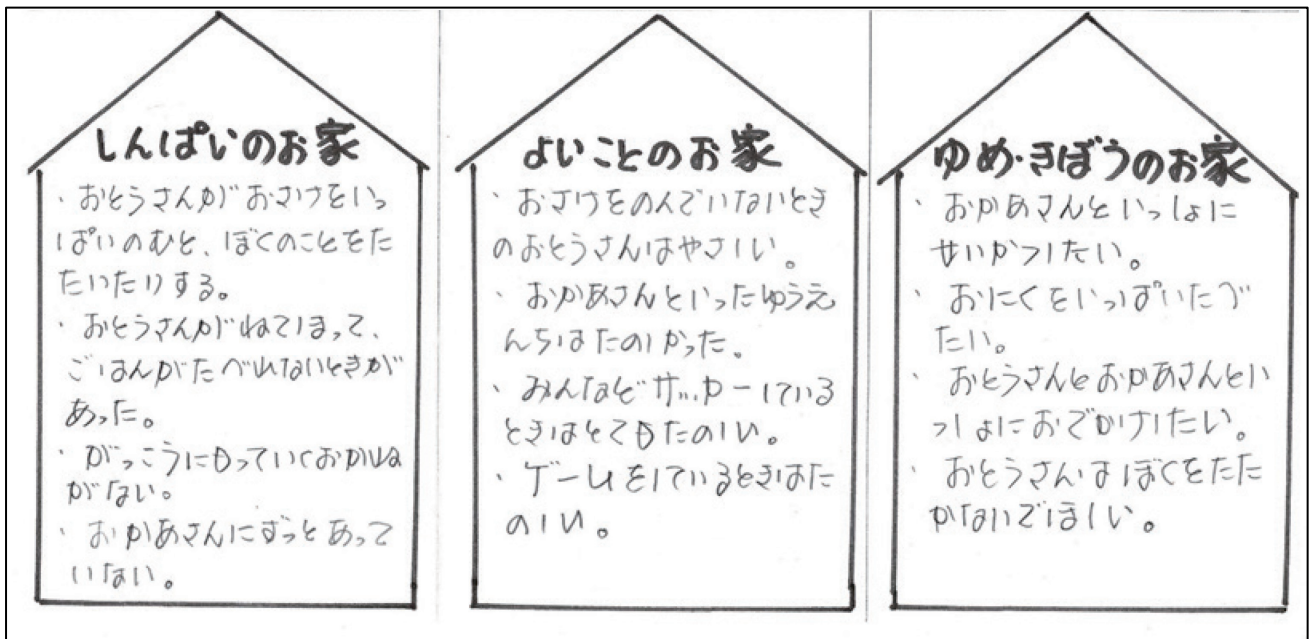 しんぱいのお家
・おとうさんがおさけをいっ
ぱいのむと、ぼくのことをた
たいたりする。
・おとうさんがねてしまって、
ごはんがたべれないときが
あった。
・がっこうにもっていくおかね
がない。
・おかあさんにずっとあって
いない。
よいことのお家
・おさけをのんでいないとき
のおとうさんはやさしい。
・おかあさんといったゆうえ
んちはたのしかった。
・みんなとサッカーしている
ときはとてもたのしい。
・ゲームをしているときはた
のしい。
ゆめ・きぼうのお家
・おかあさんといっしょに
せいかつしたい。
・おにくをいっぱいたべ
たい。
・おとうさんとおかあさんとい
っしょにおでかけしたい。
・おとうさんはぼくをたた
かないでほしい。